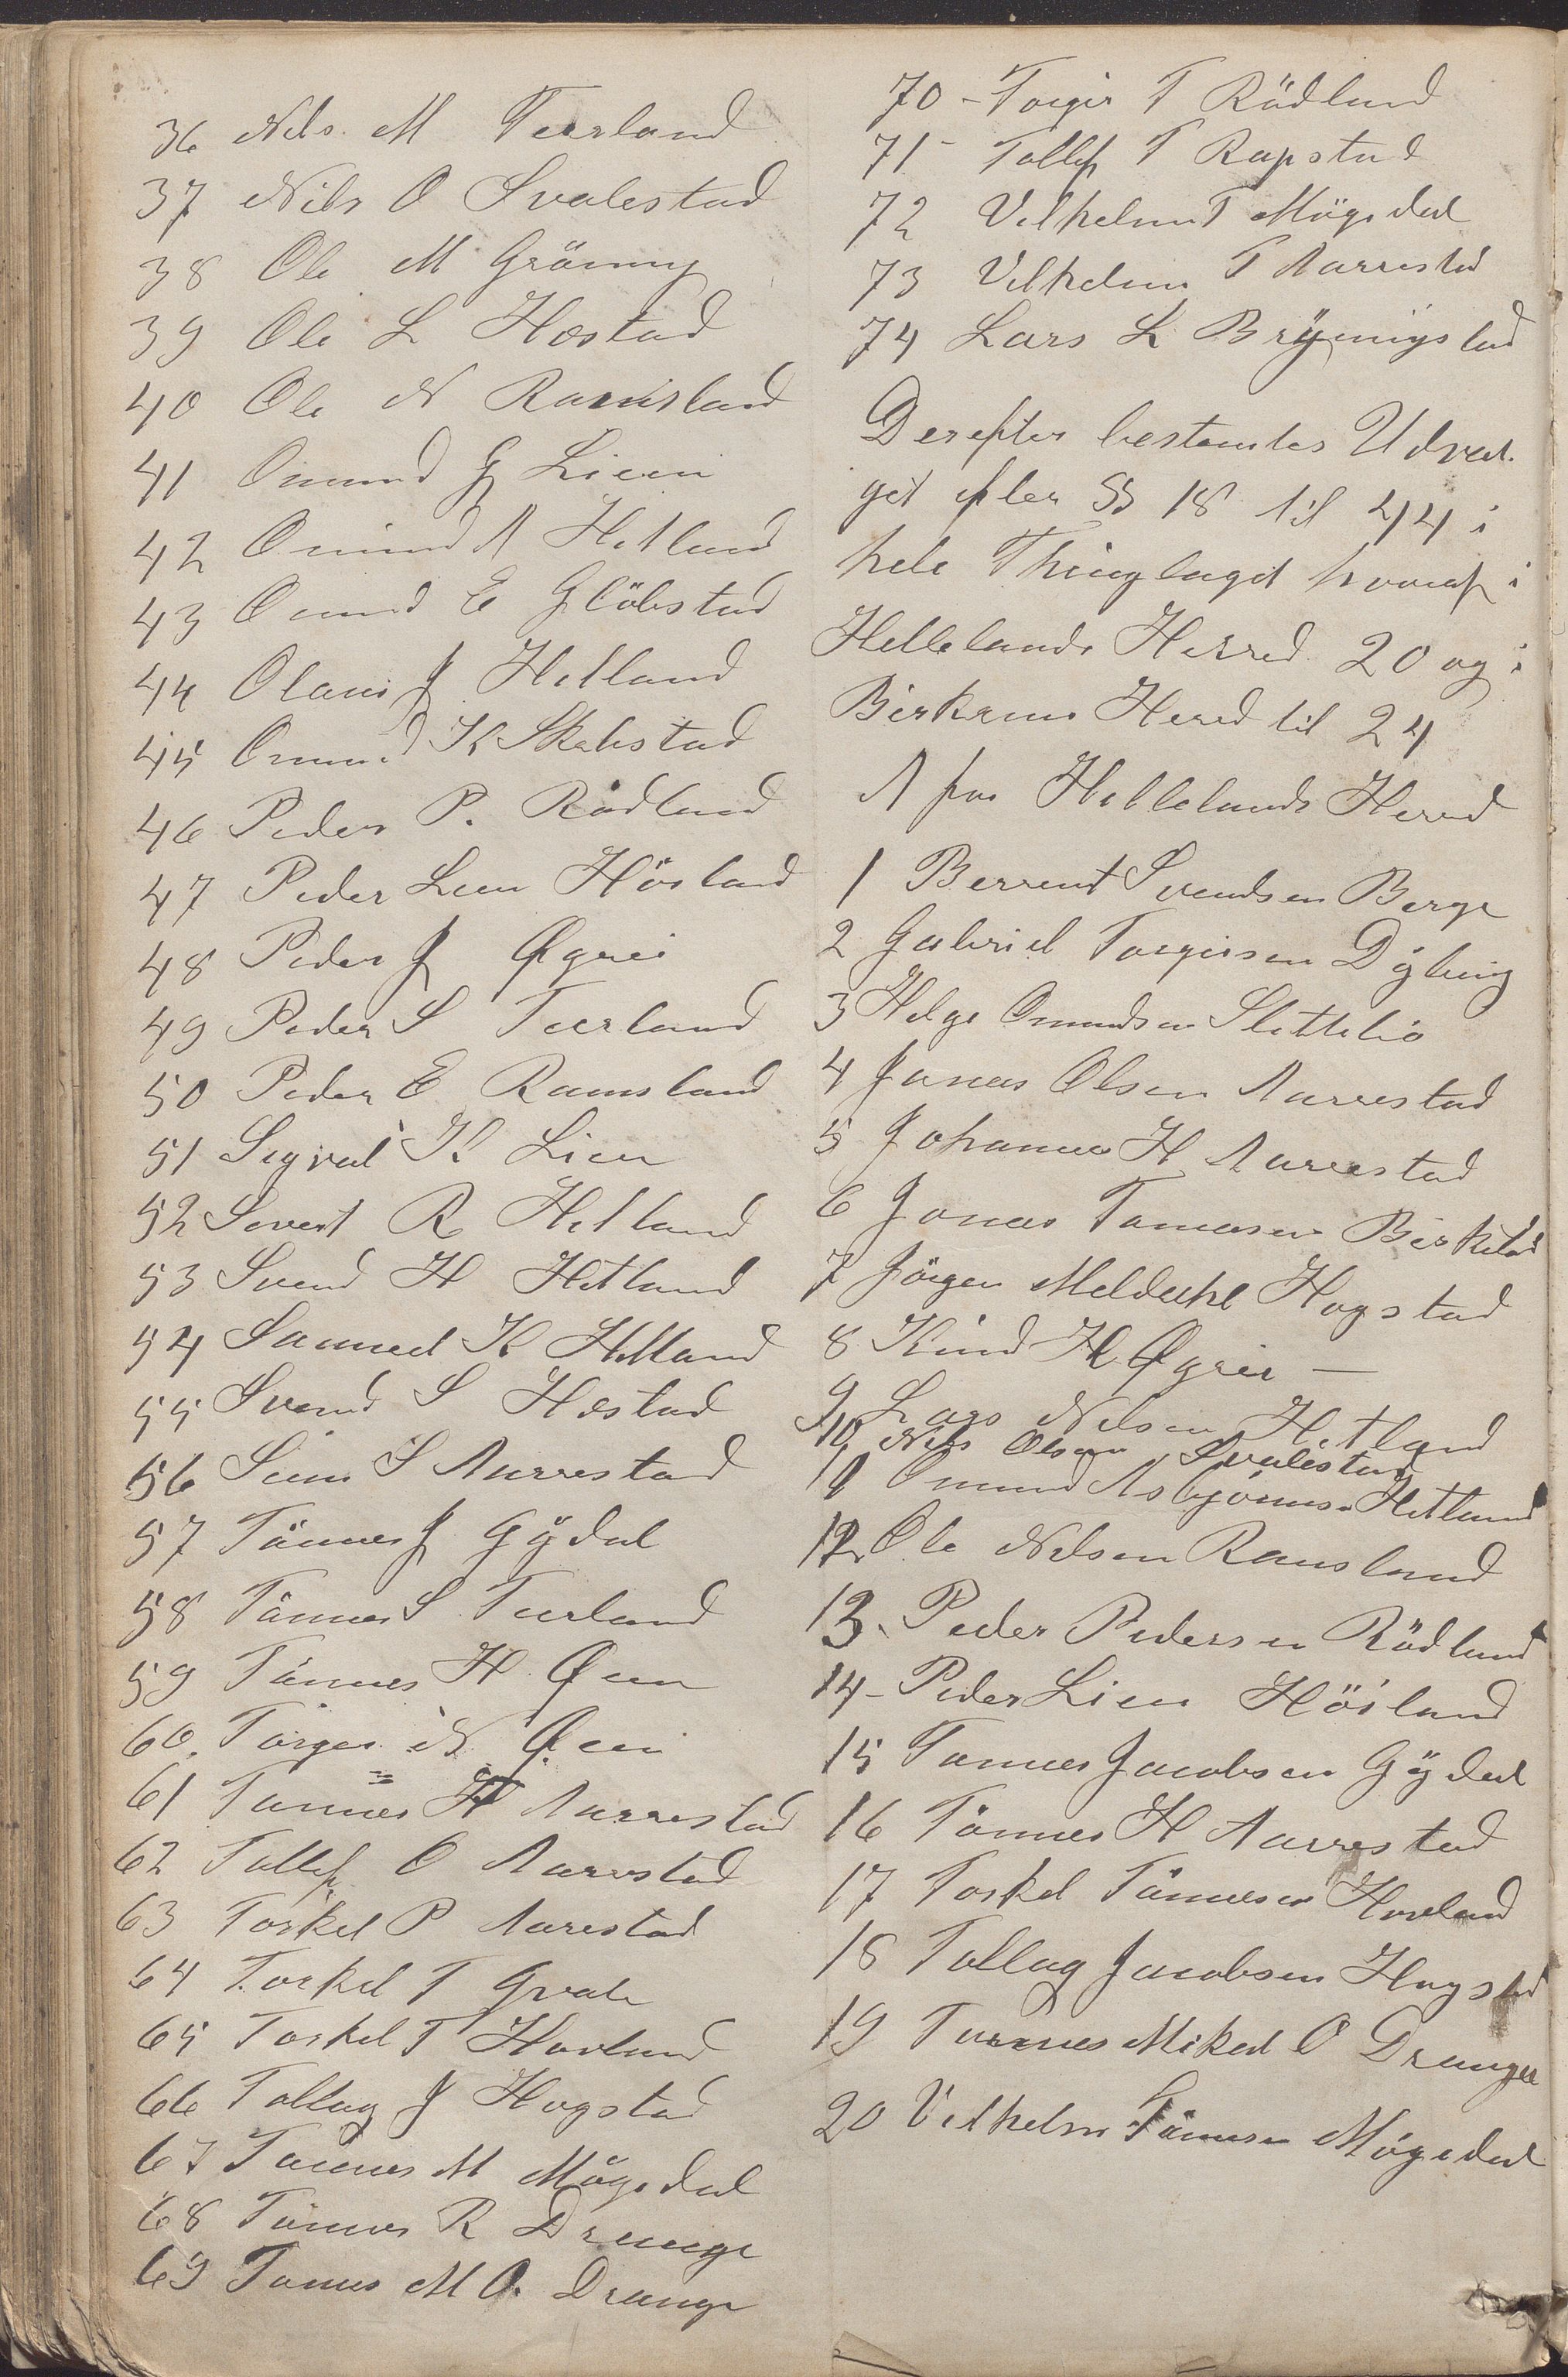 36 Nils. M Teerland
37 Nils O Svalestad
38 Ole M Gröning
39 Ole L Hæstad
40 Ole N Ramsland
41 Omund G Lien
42 Omund A Hetland
43 Omund E Glöbstad
44 Olaus J Hetland
45 Omund K Skebstad
46 Peder P. Rödland
47 Peder Lien Hösland
48 Peder J Øgrei
49 Peder S Teerland
50 Peder E Ramsland
51 Sigval K Lien
52 Sivert R Hetland
53 Svend H Hetland
54 Samuel K Hetland
55 Svend S Hæstad
56 S Aarrestad
57 Tönnes J Gÿdal
58 Tönnes S Teerland
59 Tönnes H. Øen
60. Törger N Øen
61 Tönnes H Aarrestad
62 Tollef O Aarrestad
63 Torkel P Aarestad
64 Torkel T Qvale
65 Torkel T Hovland
66 Tollag J Hogstad
67 Tönnes M Mögedal
68 Tönnes R Drange
69 Tönnes M O. Drange
70 - Torger T Rödland
71 - Tollef T Rapstad
72 Vilhelm T Mögedal
73 Vilhelm T Aarrestad
74 Lars L Brÿnnigstad
Derefter bestemtes Udval-
get efter §§ 18 til 44 i
hele Thinglaget hvoraf i
Hellelands Herred 20 og i
Birkrem Herred til 24
A for Hellelands Herred
1 Berrent Svendsen Berge
2 Gabriel Torgersen Dÿbing
3 Helge Omundsen Slettelid
4 Jonas Olsen Aarrestad
5 Johannes H Aarrestad
6 Jonas Tomasen Birkeland
7 Jörgen Meldahl Hogstad
8 Knud H Øgrei —
9 Lars Nilsen Hetland
10 Nils Olsen Svalestad
11 Omund Asbjörns. Hetland
12 Ole Nilsen Ramsland
13. Peder Pedersen Rödland
14 - Peder Lien Hösland
15 Tönnes Jacobsen Gÿdal
16 Tönnes H Aarrestad
17 Torkel Tönnesen Hovland
18 Tollag Jacobsen Hogstad
19 Tönnes Mikal O Drange
20 Vilhelm Tönnesen Mögedal